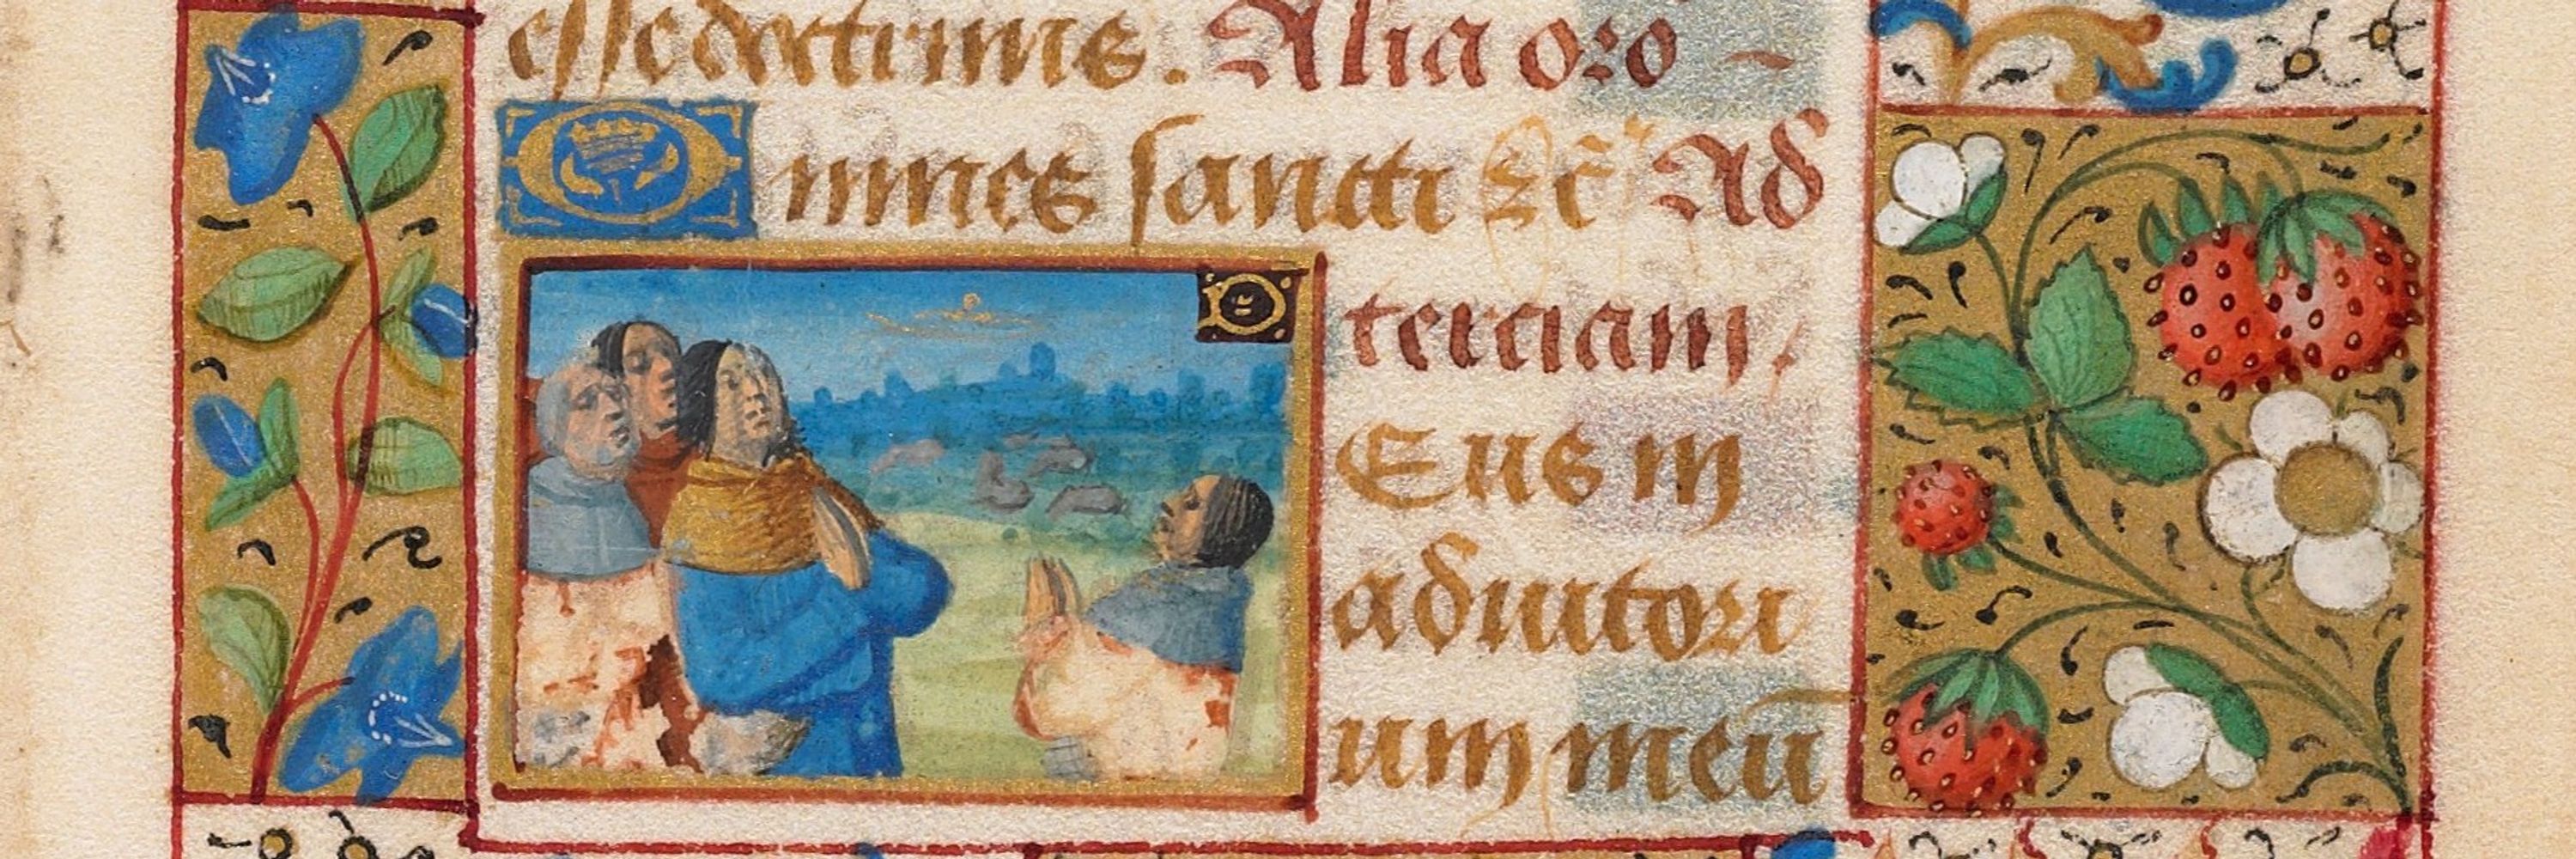 esse doctrinis. Alia oro -
Omnes sancti ⁊c̄ Ad
terciam,
DEus in
adiutori
um meū